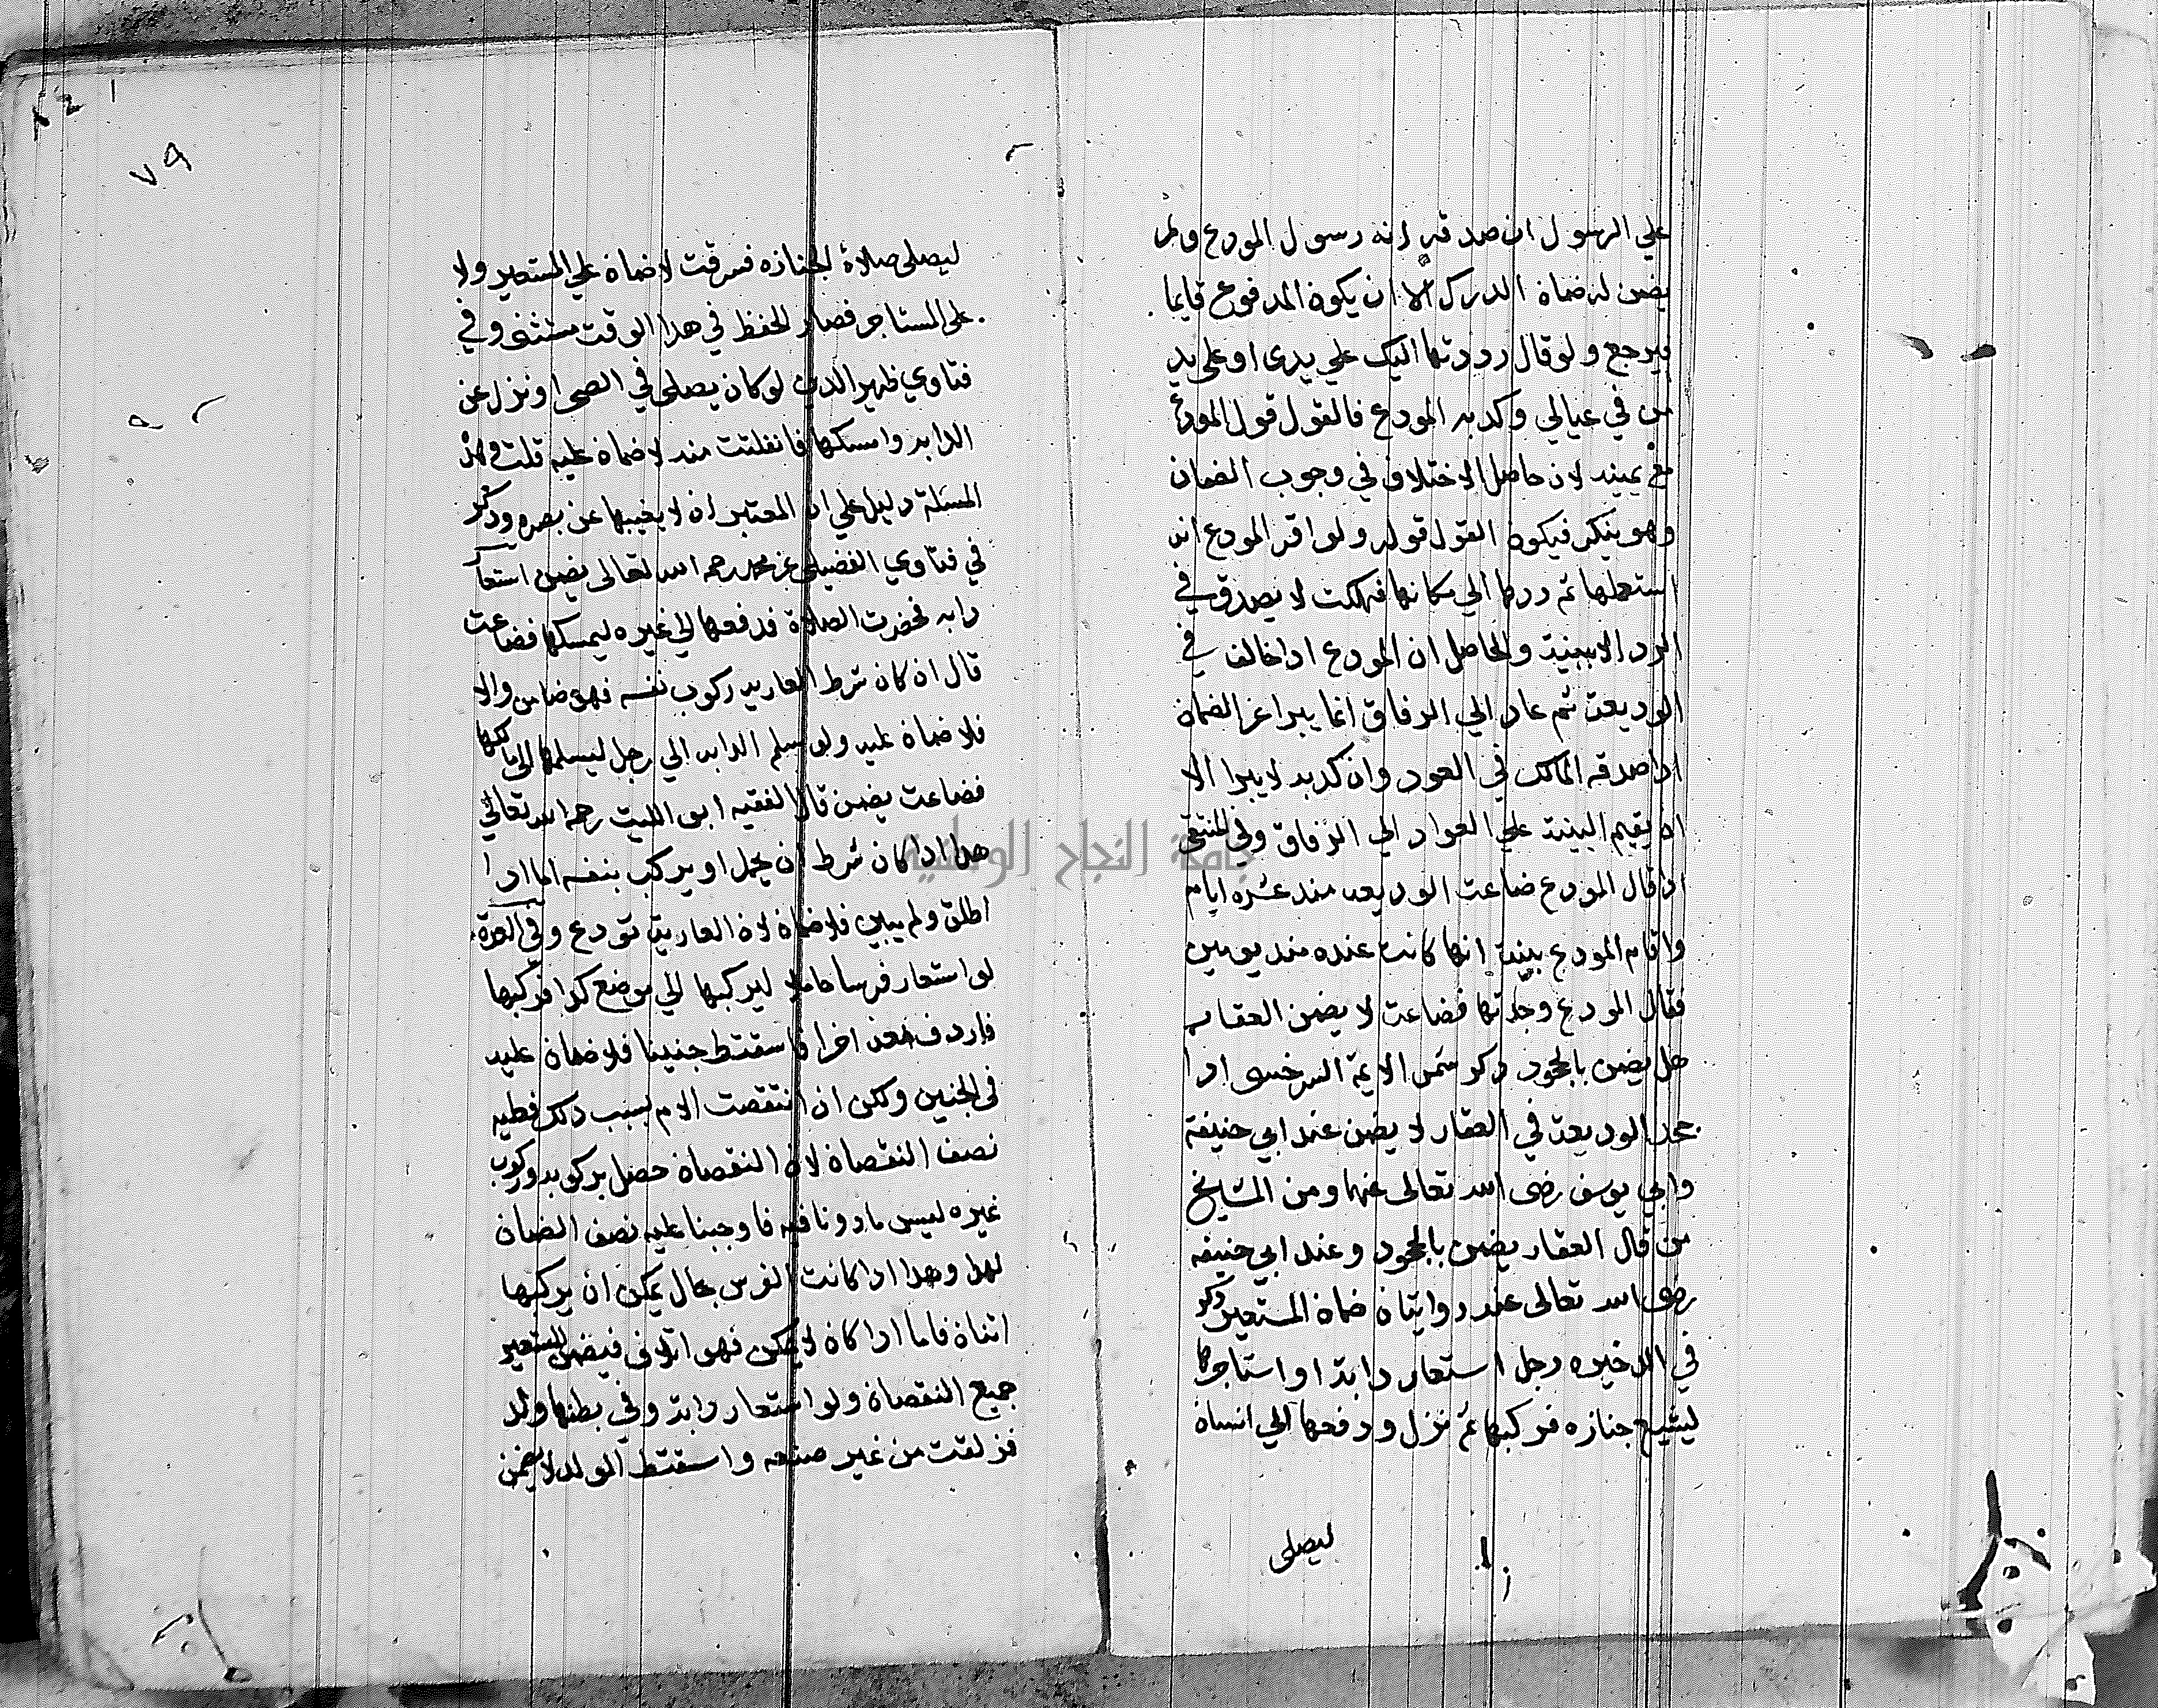 علي الرسول ان صدقه انه رسول المودع ولم
يضمن له ضمان الدرك الا ان يكون المدفوع قايما
فيرجع ولو قال رددتها اليك علي يدي او علي يد
من في عيالي وكدبه المودع فالقول قول المودع
مع يمينه لان حاصل الاختلاف في وجوب الضمان
وهو ينكر فيكون القول قوله ولو اقر المودع انه
استعملها ثم ردها الي مكانها فهلكت لا يصدق في
الرد الا ببينة والحاصل ان المودع ادا خالف في
الوديعة ثم عاد الي الوفاق انما يبرا عن الضمان
ادا صدقه المالك في العود وان كدبه لا يبرا الا
ان يقيم البينة علي العواد الي الوفاق وفي المنتقى
ادا قال المودع ضاعت الوديعه مند عشره ايام
واقام المودع بينة انها كانت عنده مند يومين
فقال المودع وجدتها فضاعت لا يضمن العقار
هل يضمن بالجحود دكر شمس الايمة السرخسى ادا
جحد الوديعة في العقار لا يضمن عند ابي حنيفة
وابي يوسف رضى الله تعالى عنهما ومن المشايخ
من قال العقار يضمن بالجحود وعند ابي حنيفه
رضى الله تعالى عنه روايتان ضمان المستعير دكر
في الدخيره رجل استعار دابة او استاجرها
ليشيع جنازه فركبها ثم نزل ودفعها الي انسان
ليصلى
٧٩
ليصلى صلاة الجنازه فسرقت لا ضمان علي المستعير ولا
على المستاجر فصار الحفظ في هدا الوقت مستثنى وفي
فتاوي ظهير الدين لو كان يصلى في الصحرا ونزل عن
الدابه وامسكها فانفلتت منه لا ضمان عليه قلت وهده
المسئلة دليل علي ان المعتبر ان لا يغيبها عن بصره ودكر
في فتاوي الفضيلي عن محمد رحمه الله تعالى يضمن استعار
دابه فحضرت الصلاة فدفعها الي غيره ليمسكها فضاعت
قال ان كان شرط العاريه ركوب نفسه فهو ضامن والا
فلا ضمان عليه ولو سلم الدابه الي رجل ليسلمها الي مالكها
فضاعت يضمن قال الفقيه ابو الليث رحمه الله تعالي
هدا ادا كان شرط ان يحمل او يركب بنفسه اما ادا
اطلق ولم يبين فلا ضمان لان العارية تودع وفي العدة
لو استعار فرسا حاملا ليركبها الي موضع كدا فركبها
فاردف معه اخرا فاسقتط جنينا فلا ضمان عليه
في الجنين ولكن ان انتقصت الام بسبب دلك فعليه
نصف النقصان لان النقصان حصل بركوبه وركوب
غيره ليس مادونا فيه فاوجبنا عليه نصف الضمان
لهدا وهدا ادا كانت الفرس بحال يمكن ان يركبها
اثنان فاما ادا كان لا يمكن فهو اتلاف فيضمن المستعير
جميع النقصان ولو استعار دابة وفي بطنها ولد
فزلقت من غير صنعه واسقتط الولد لا يضمن
جامعة النجاح الوطنية